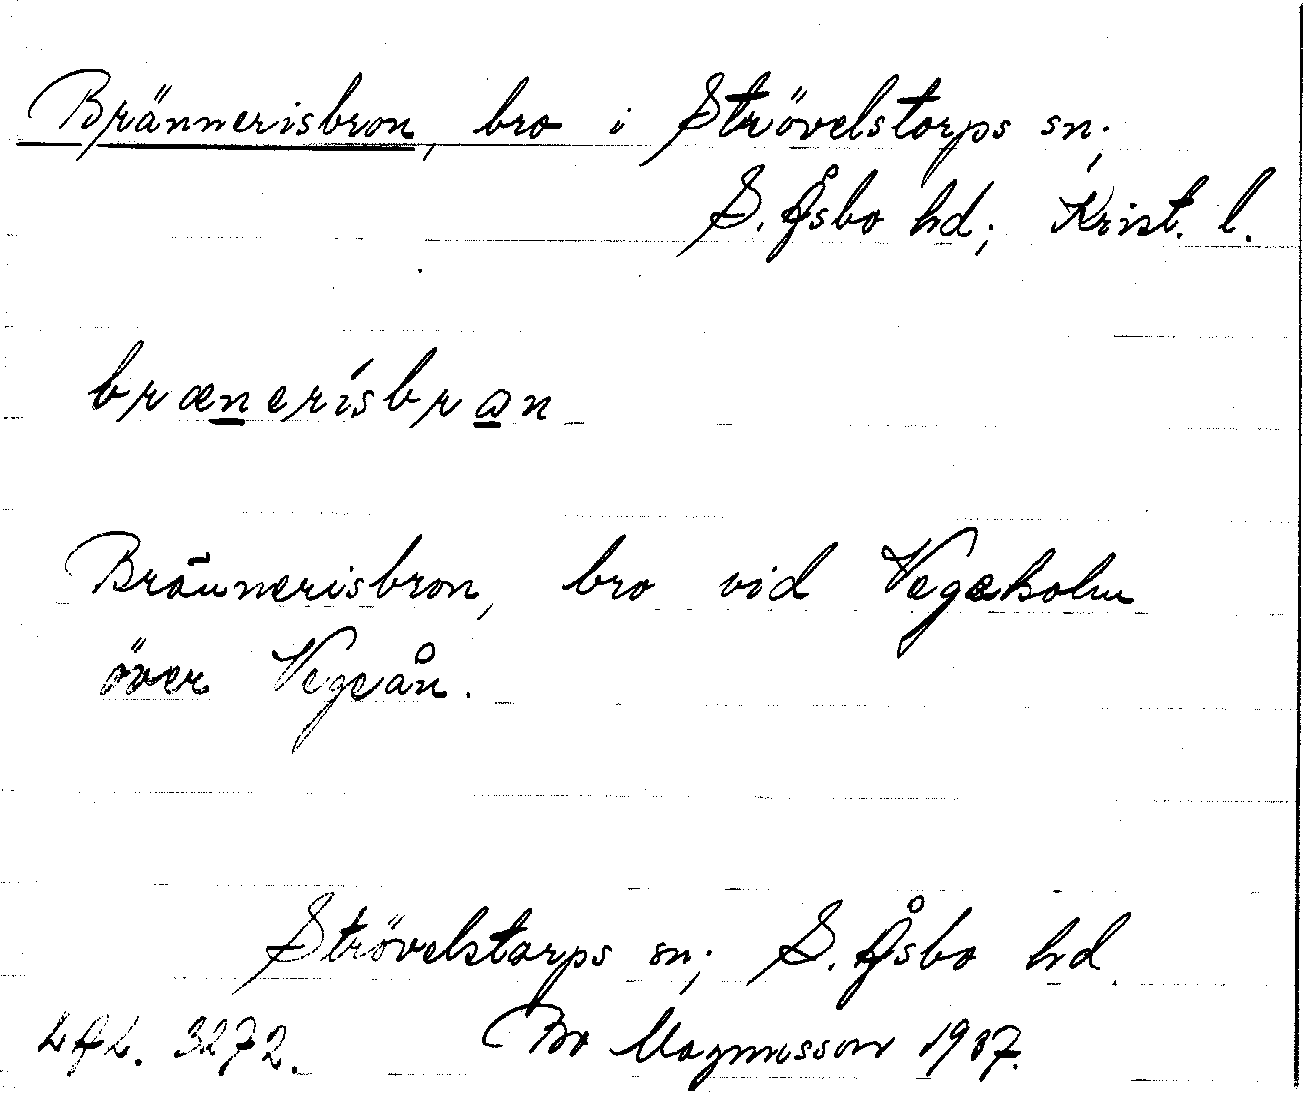 Brännerisbron, bro i Strövelstorps sn;
S. Åsbo hd; Krist. l.
brænerisbran
Brännerisbron, bro vid Vegeholm
över Vegeån.
Strövelstorps sn; S. Åsbo hd.
3272. Bo Magnusson 1937.